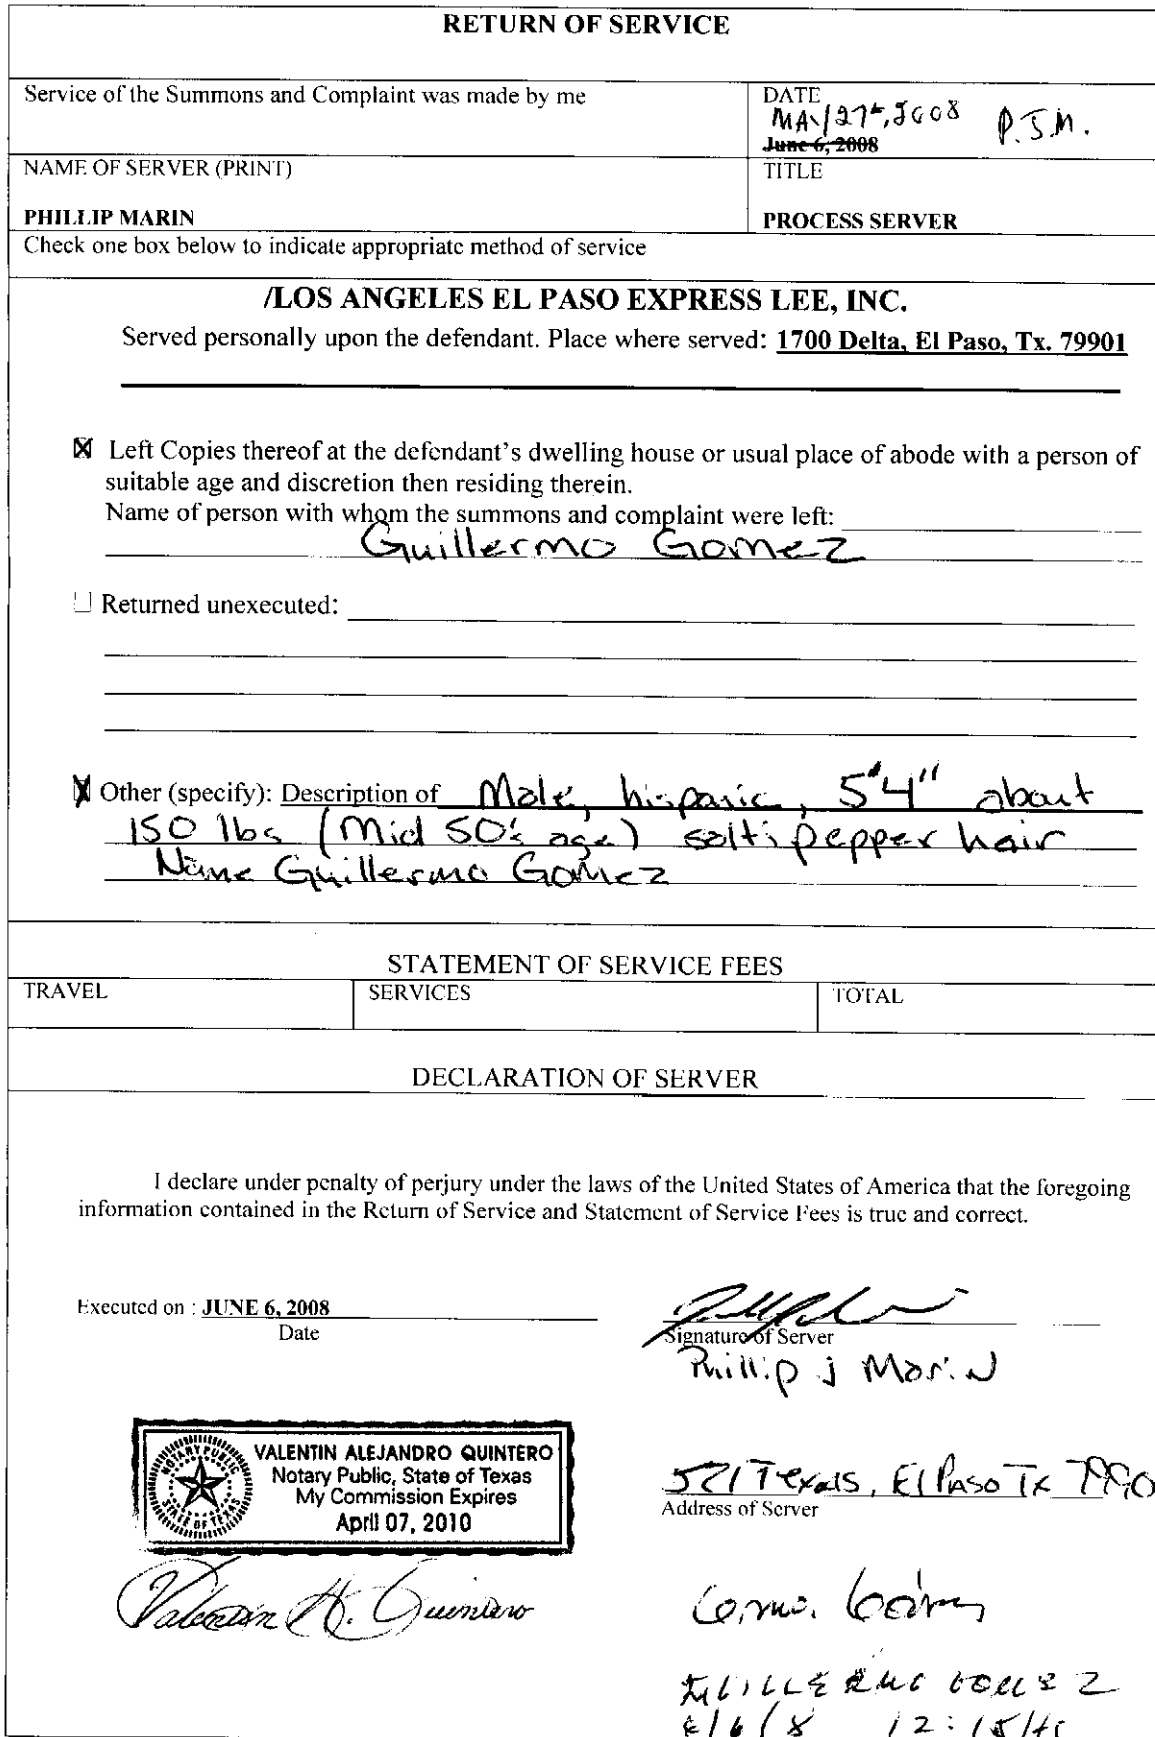 RETURN OF SERVICE
Service of the Summons and Complaint was made by me
DATE
MAY 27th, 2008 P.J.M.
June 6, 2008
NAME OF SERVER (PRINT)
TITLE
PHILLIP MARIN
PROCESS SERVER
Check one box below to indicate appropriate method of service
/LOS ANGELES EL PASO EXPRESS LEE, INC.
Served personally upon the defendant. Place where served: 1700 Delta, El Paso, Tx. 79901
Left Copies thereof at the defendant's dwelling house or usual place of abode with a person of
suitable age and discretion then residing therein.
Name of person with whom the summons and complaint were left:
Guillermo Gomez
Returned unexecuted:
Other (specify): Description of Male, hispanic, 5'4" about
150 lbs (Mid 50's age) salt; pepper hair
Name Guillermo Gomez
STATEMENT OF SERVICE FEES
TRAVEL
SERVICES
TOTAL
DECLARATION OF SERVER
I declare under penalty of perjury under the laws of the United States of America that the foregoing
information contained in the Return of Service and Statement of Service Fees is true and correct.
Executed on : JUNE 6, 2008
Date
Signature of Server
Phillip J Marin
NOTARY PUBLIC
STATE OF TEXAS
VALENTIN ALEJANDRO QUINTERO
Notary Public, State of Texas
My Commission Expires
April 07, 2010
521 Texas, El Paso Tx
Address of Server
Valentin A. Quintero
GUILLERMO GOMEZ